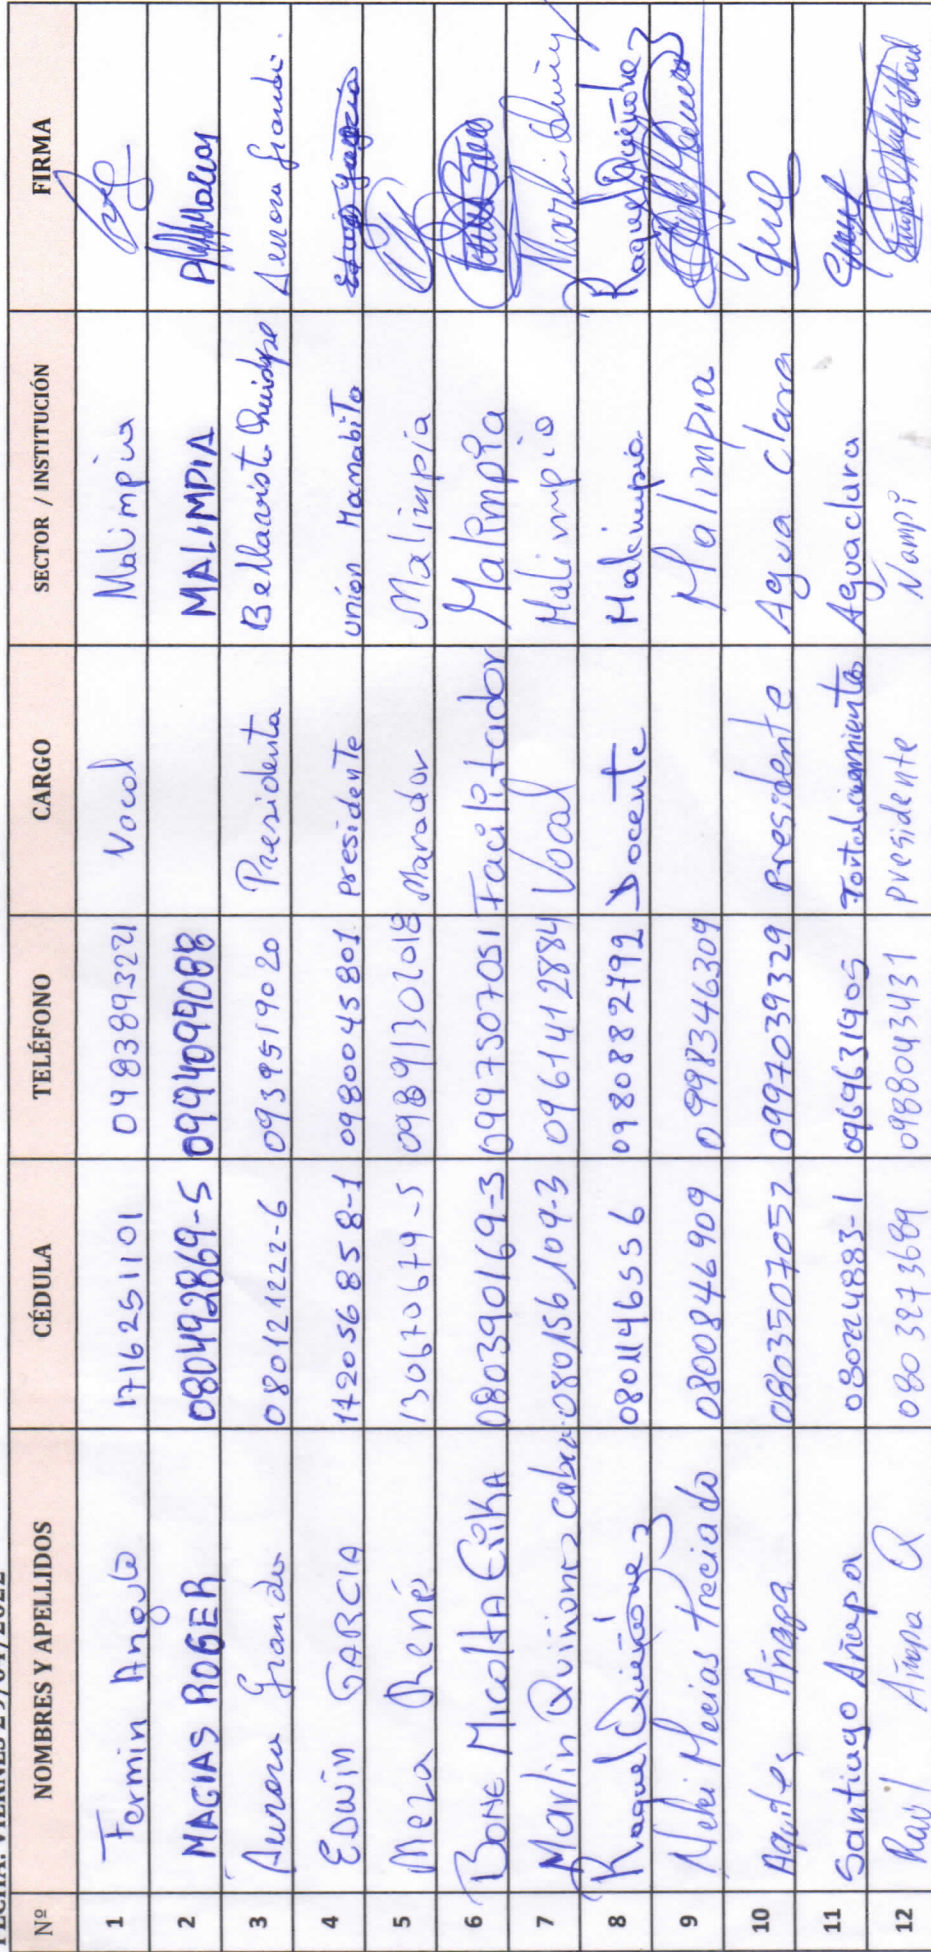 FECHA: VIERNES 29/07/2022
Nº NOMBRES Y APELLIDOS CÉDULA TELÉFONO CARGO SECTOR / INSTITUCIÓN FIRMA
1 Fermin Angulo 1716251101 0483893221 Vocal Malimpia
2 MACIAS ROGER 080492869-5 0994099088 MALIMPIA
3 Aurora Grande 080121222-6 0939519020 Presidenta Bellavista
4 EDWIN GARCIA 172056858-1 0980045801 presidente unión Manabita Edwin García
5 Meza René 130670674-5 09891302018 Morador Malimpia
6 BONE MICOLTA ERIKA 080390169-3 0997507051 Facilitador Malimpia
7 Marlin Quiñonez 080156109-3 0961412884 Vocal Malimpia
8 Raquel Quiñónez 0801465556 0980882792 Docente Malimpia Raquel Quiñónez
9 Nehi Mecias Preciado 0800846909 0998346309 Malimpia
10 Aquiles Añapa 0803507057 0997039329 Presidente Agua Clara
11 Santiago Añapa 080224883-1 0969631905 Fortalecimiento Aguaclara
12 Raul Añapa Q 0803273689 0988043431 presidente Ñampi